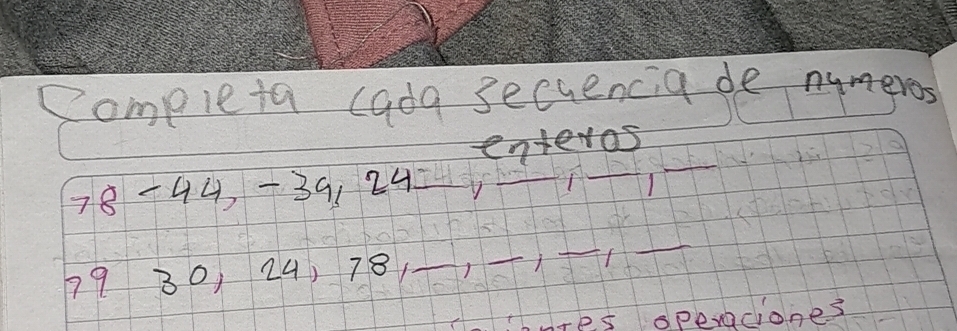 Completa cada secuencia de números
enteros
78 -44, -39, 24 __, __, __, __
79 30, 24, 78, __, __, __, __
operaciones